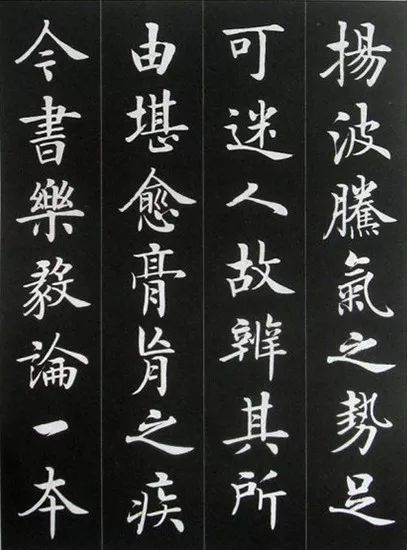 揚波騰氣之勢足
可迷人故辨其所
由堪愈膏肓之疾
今書樂毅論一本